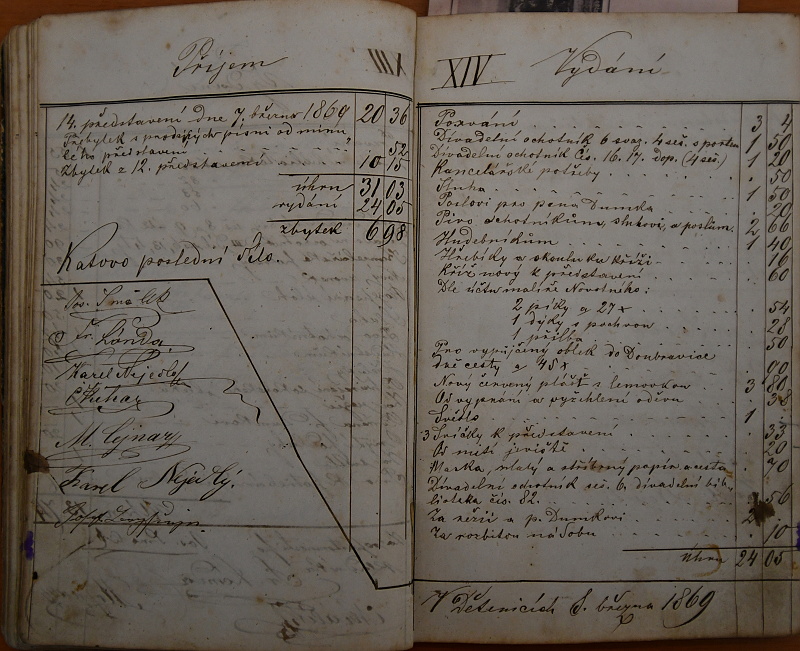 Příjem XIII
14. představení dne 7. března 1869 20 36
Přebytek z prodaných písní od minu
lého představení " 52
Zbytek z 12. představení 10 15
úhrn 31 03
vydání 24 05
zbytek 6 98
Katovo poslední dílo.
Fr. Londa
Karel Nejedlý
M. Cejnar
Karel Nejedlý.
XIV Vydání
Pozvání 3 4
Divadelní ochotník 6 svaz. 4 seš. s portem 1 50
Divadelní ochotník čís. 16. 17. dop. (4 seš.) 1 20
Kancelářské potřeby 50
Stuha
Poslovi pro pana Dumka 20
Pivo ochotníkům, sluhovi, a poslům 2 66
Hudebníkům 1 40
Hřebíky a skoulu ke kříži 16
Kříž nový k představení 60
Dle účtu malíře Novotného:
2 píky a 27 x 54
1 dýky s pochvou 28
přílba 50
Pro vypůjčený oblek do Doubravice
dvě cesty a 45 x 90
Nový červený plášť s lemovkou 3 80
Od vyprání a vyžehlení oděvu 38
Světlo 1
3 Svíčky k představení 33
Od místí jeviště 20
Marka, zlatý a stříbrný papír a cesta
Divadelní ochotník seš. 6. divadelní bib-
lioteka čís. 82. 1 56
Za režii a p. Dumkovi 2
Za rozbitou nádobu 10
úhrn 24 05
V Dětenicích 8. března 1869